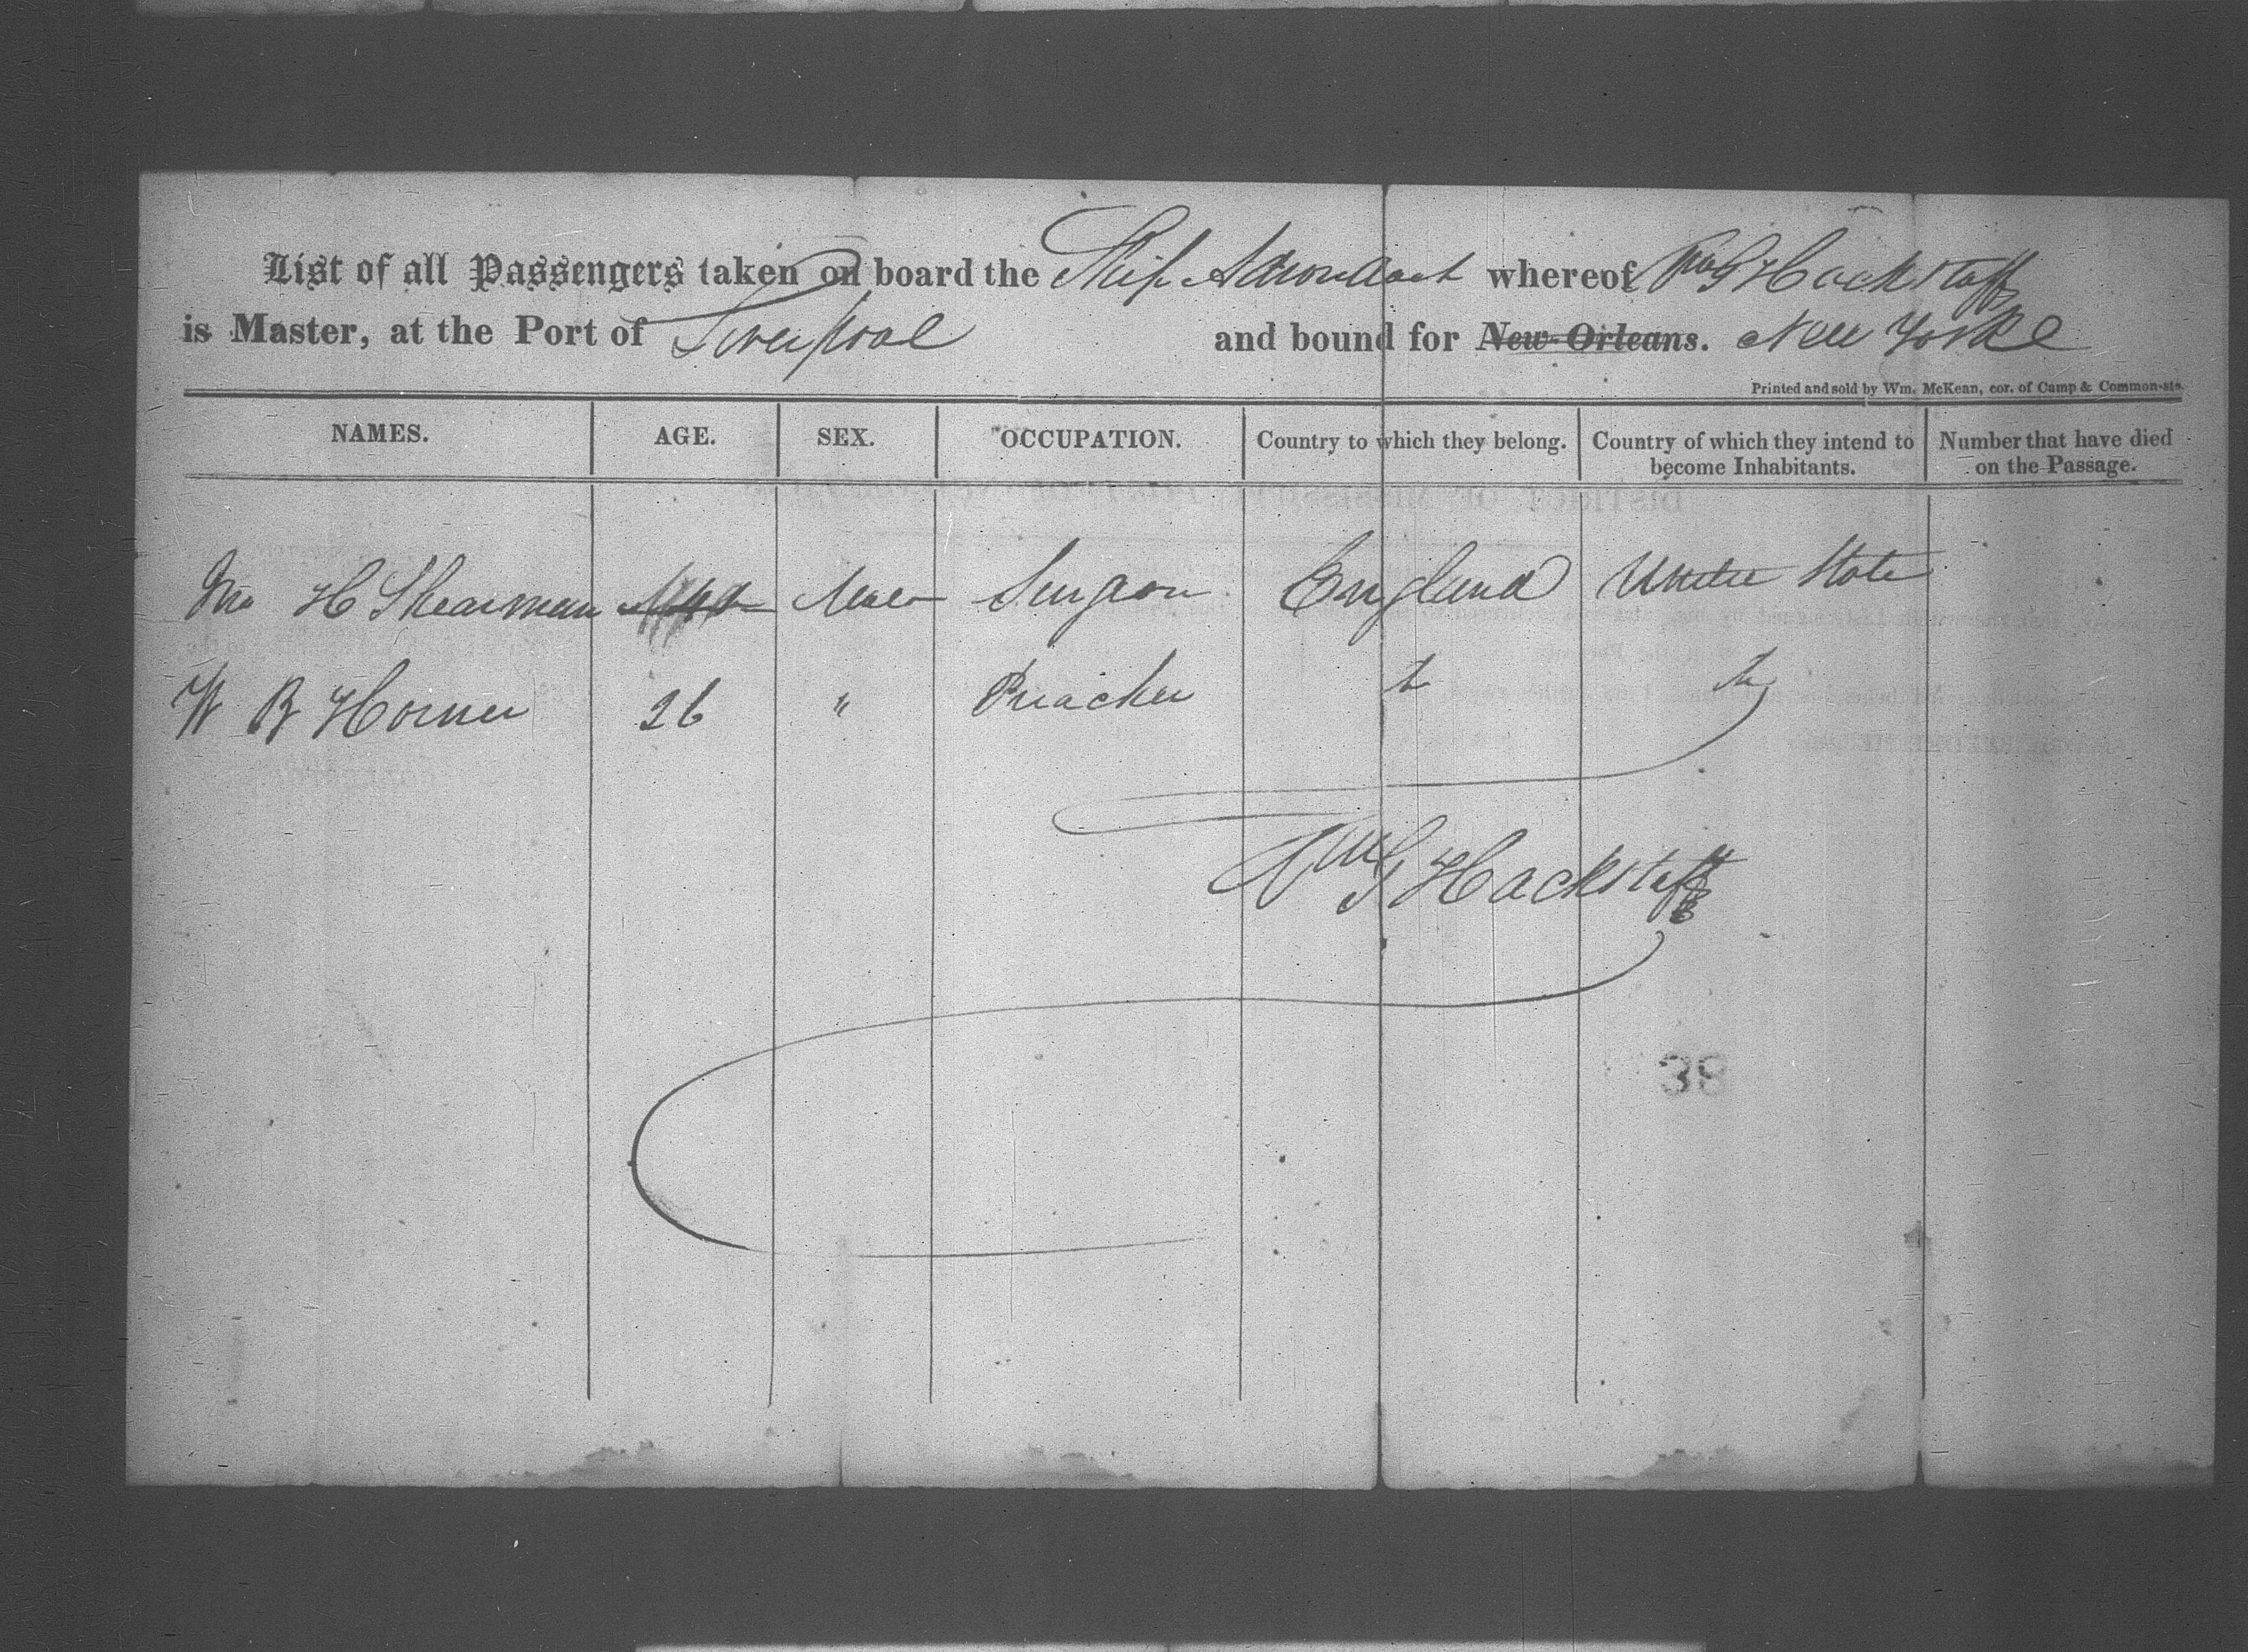 List of all Passengers taken on board the Ship Adirondack whereof Wm G Hackstaff
is Master, at the Port of Liverpool and bound for New Orleans. New York
Printed and sold by Wm. McKean, cor. of Camp & Common-sts.
NAMES. AGE. SEX. OCCUPATION. Country to which they belong. Country of which they intend to become Inhabitants. Number that have died on the Passage.
H Shearman Male Surgeon England United State
W B Horner 26 " Preacher
Wm G Hackstaff
38